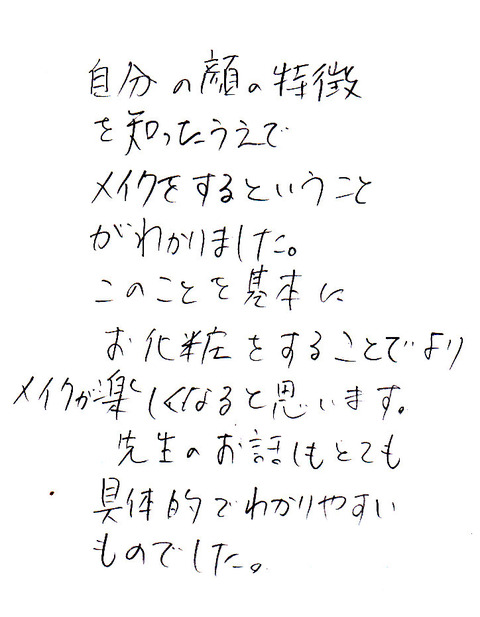 自分の顔の特徴
を知ったうえで
メイクをするということ
がわかりました。
このことを基本に
お化粧をすることでより
メイクが楽しくなると思います。
先生のお話しもとても
具体的でわかりやすい
ものでした。